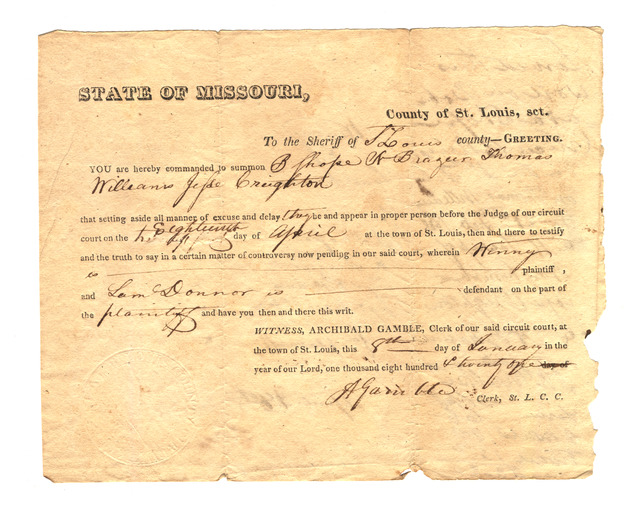 STATE OF MISSOURI,
County of St. Louis, sct.
To the Sheriff of St Louis county—GREETING.
YOU are hereby commanded to summon B Shope N Brazeer Thomas
Williams Jesse Creighton
that setting aside all manner of excuse and delay they be and appear in proper person before the Judge of our circuit
court on the Eighteenth day of April at the town of St. Louis, then and there to testify
and the truth to say in a certain matter of controversy now pending in our said court, wherein Winny
is plaintiff,
and Donnor is defendant on the part of
the plaintiff and have you then and there this writ.
WITNESS, ARCHIBALD GAMBLE, Clerk of our said circuit court, at
the town of St. Louis, this 8th day of January in the
year of our Lord, one thousand eight hundred & twenty one day of
A Gamble Clerk, St. L. C. C.